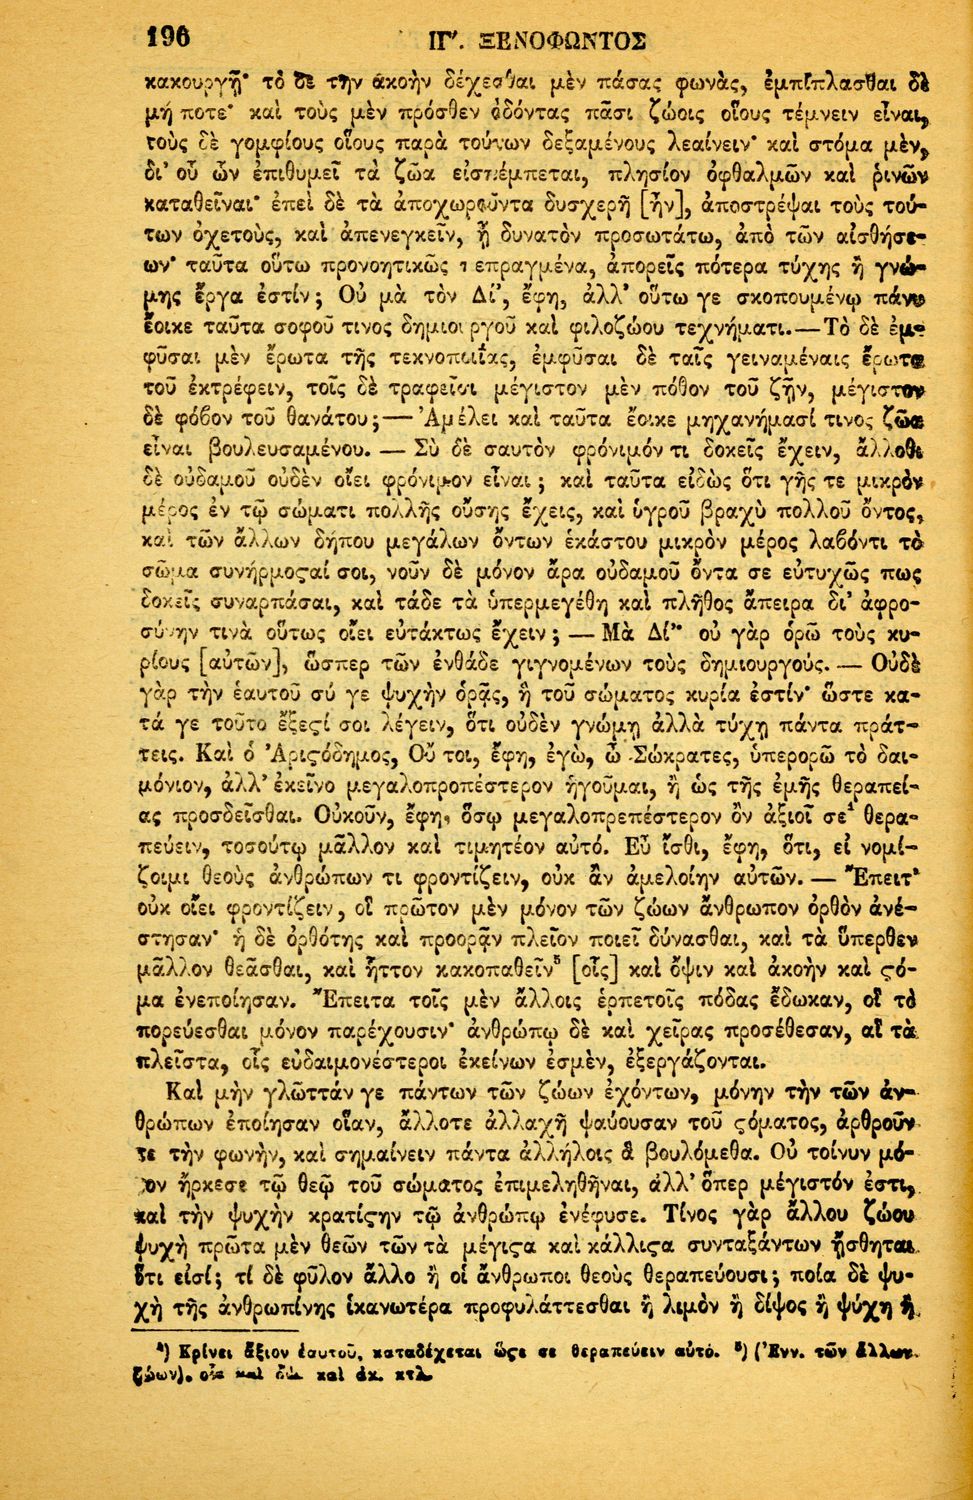 196 ΙΓ′. ΞΕΝΟΦΩΝΤΟΣ
κακουργῇ· τὸ δὲ τὴν ἀκοὴν δέχεσθαι μὲν πάσας φωνὰς, ἐμπίπλασθαι δὲ
μή ποτε· καὶ τοὺς μὲν πρόσθεν ὀδόντας πᾶσι ζώοις οἵους τέμνειν εἶναι,
τοὺς δὲ γομφίους οἵους παρὰ τούτων δεξαμένους λεαίνειν· καὶ στόμα μὲν,
δι' οὗ ὧν ἐπιθυμεῖ τὰ ζῶα εἰσπέμπεται, πλησίον ὀφθαλμῶν καὶ ῥινῶν
καταθεῖναι· ἐπεὶ δὲ τὰ ἀποχωροῦντα δυσχερῆ [ἦν], ἀποστρέψαι τοὺς τού-
των ὀχετοὺς, καὶ ἀπενεγκεῖν, ᾗ δυνατὸν προσωτάτω, ἀπὸ τῶν αἰσθήσε-
ων· ταῦτα οὕτω προνοητικῶς πεπραγμένα, ἀπορεῖς πότερα τύχης ἢ γνώ-
μης ἔργα ἐστίν; Οὐ μὰ τὸν Δί', ἔφη, ἀλλ' οὕτω γε σκοπουμένῳ πάνυ
ἔοικε ταῦτα σοφοῦ τινος δημιουργοῦ καὶ φιλοζώου τεχνήματι.—Τὸ δὲ ἐμ-
φῦσαι μὲν ἔρωτα τῆς τεκνοποιΐας, ἐμφῦσαι δὲ ταῖς γειναμέναις ἔρωτα
τοῦ ἐκτρέφειν, τοῖς δὲ τραφεῖσι μέγιστον μὲν πόθον τοῦ ζῇν, μέγιστον
δὲ φόβον τοῦ θανάτου;— Ἀμέλει καὶ ταῦτα ἔοικε μηχανήμασί τινος ζῶα
εἶναι βουλευσαμένου. — Σὺ δὲ σαυτὸν φρόνιμόν τι δοκεῖς ἔχειν, ἄλλοθι
δὲ οὐδαμοῦ οὐδὲν οἴει φρόνιμον εἶναι; καὶ ταῦτα εἰδὼς ὅτι γῆς τε μικρὸν
μέρος ἐν τῷ σώματι πολλῆς οὔσης ἔχεις, καὶ ὑγροῦ βραχὺ πολλοῦ ὄντος,
καὶ τῶν ἄλλων δήπου μεγάλων ὄντων ἑκάστου μικρὸν μέρος λαβόντι τὸ
σῶμα συνήρμοςαί σοι, νοῦν δὲ μόνον ἄρα οὐδαμοῦ ὄντα σε εὐτυχῶς πως
δοκεῖς συναρπάσαι, καὶ τάδε τὰ ὑπερμεγέθη καὶ πλῆθος ἄπειρα δι' ἀφρο-
σύνην τινὰ οὕτως οἴει εὐτάκτως ἔχειν; — Μὰ Δί'· οὐ γὰρ ὁρῶ τοὺς κυ-
ρίους [αὐτῶν], ὥσπερ τῶν ἐνθάδε γιγνομένων τοὺς δημιουργούς. — Οὐδὲ
γὰρ τὴν ἑαυτοῦ σύ γε ψυχὴν ὁρᾷς, ἣ τοῦ σώματος κυρία ἐστίν· ὥστε κα-
τά γε τοῦτο ἔξεςί σοι λέγειν, ὅτι οὐδὲν γνώμῃ ἀλλὰ τύχῃ πάντα πράτ-
τεις. Καὶ ὁ Ἀριςόδημος, Οὔ τοι, ἔφη, ἐγὼ, ὦ Σώκρατες, ὑπερορῶ τὸ δαι-
μόνιον, ἀλλ' ἐκεῖνο μεγαλοπροπέστερον ἡγοῦμαι, ἢ ὡς τῆς ἐμῆς θεραπεί-
ας προσδεῖσθαι. Οὐκοῦν, ἔφη, ὅσῳ μεγαλοπρεπέστερον ὂν ἀξιοῖ σε⁴ θερα-
πεύειν, τοσούτῳ μᾶλλον καὶ τιμητέον αὐτό. Εὖ ἴσθι, ἔφη, ὅτι, εἰ νομί-
ζοιμι θεοὺς ἀνθρώπων τι φροντίζειν, οὐκ ἂν ἀμελοίην αὐτῶν. — Ἔπειτ'
οὐκ οἴει φροντίζειν, οἳ πρῶτον μὲν μόνον τῶν ζώων ἄνθρωπον ὀρθὸν ἀνέ-
στησαν· ἡ δὲ ὀρθότης καὶ προορᾷν πλεῖον ποιεῖ δύνασθαι, καὶ τὰ ὕπερθεν
μᾶλλον θεᾶσθαι, καὶ ἧττον κακοπαθεῖν⁵ [οἷς] καὶ ὄψιν καὶ ἀκοὴν καὶ ςό-
μα ἐνεποίησαν. Ἔπειτα τοῖς μὲν ἄλλοις ἑρπετοῖς πόδας ἔδωκαν, οἳ τὸ
πορεύεσθαι μόνον παρέχουσιν· ἀνθρώπῳ δὲ καὶ χεῖρας προσέθεσαν, αἳ τὰ
πλεῖστα, οἷς εὐδαιμονέστεροι ἐκείνων ἐσμὲν, ἐξεργάζονται.
Καὶ μὴν γλῶττάν γε πάντων τῶν ζώων ἐχόντων, μόνην τὴν τῶν ἀν-
θρώπων ἐποίησαν οἵαν, ἄλλοτε ἀλλαχῆ ψαύουσαν τοῦ ςόματος, ἀρθροῦν
τε τὴν φωνὴν, καὶ σημαίνειν πάντα ἀλλήλοις ἃ βουλόμεθα. Οὐ τοίνυν μό-
νον ἤρκεσε τῷ θεῷ τοῦ σώματος ἐπιμεληθῆναι, ἀλλ' ὅπερ μέγιστόν ἐστι,
καὶ τὴν ψυχὴν κρατίςην τῷ ἀνθρώπῳ ἐνέφυσε. Τίνος γὰρ ἄλλου ζώου
ψυχὴ πρῶτα μὲν θεῶν τῶν τὰ μέγιςα καὶ κάλλιςα συνταξάντων ᾔσθηται
ὅτι εἰσί; τί δὲ φῦλον ἄλλο ἢ οἱ ἄνθρωποι θεοὺς θεραπεύουσι; ποία δὲ ψυ-
χὴ τῆς ἀνθρωπίνης ἱκανωτέρα προφυλάττεσθαι ἢ λιμὸν ἢ δίψος ἢ ψύχη ἢ
⁴) Κρίνει ἄξιον ἑαυτοῦ, καταδέχεται ὥςε σε θεραπεύειν αὐτό. ⁵) (Ἐνν. τῶν ἄλλων
ζώων). οἷς καὶ ὄψ. καὶ ἀκ. κτλ.